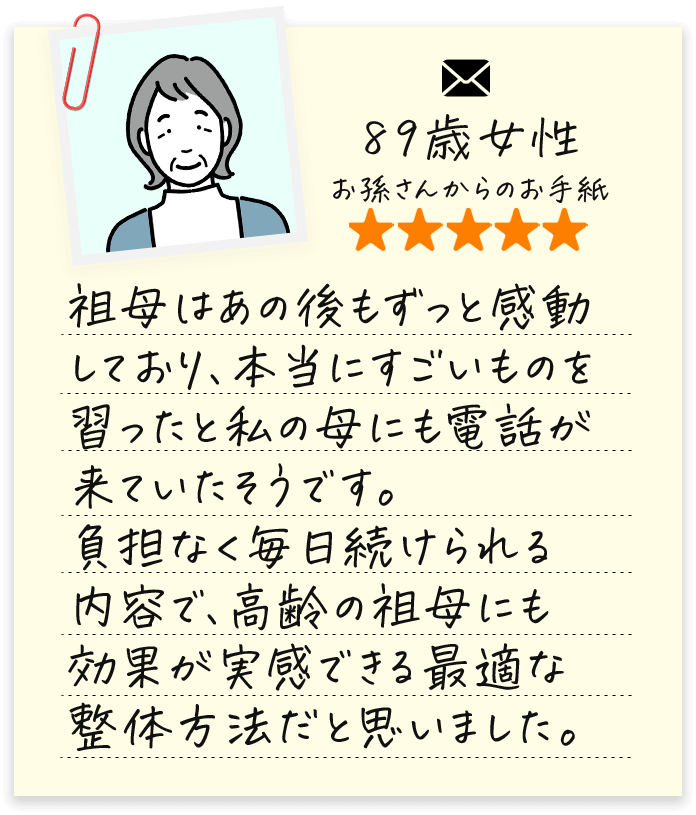 89歳女性
お孫さんからのお手紙
祖母はあの後もずっと感動
しており、本当にすごいものを
習ったと私の母にも電話が
来ていたそうです。
負担なく毎日続けられる
内容で、高齢の祖母にも
効果が実感できる最適な
整体方法だと思いました。